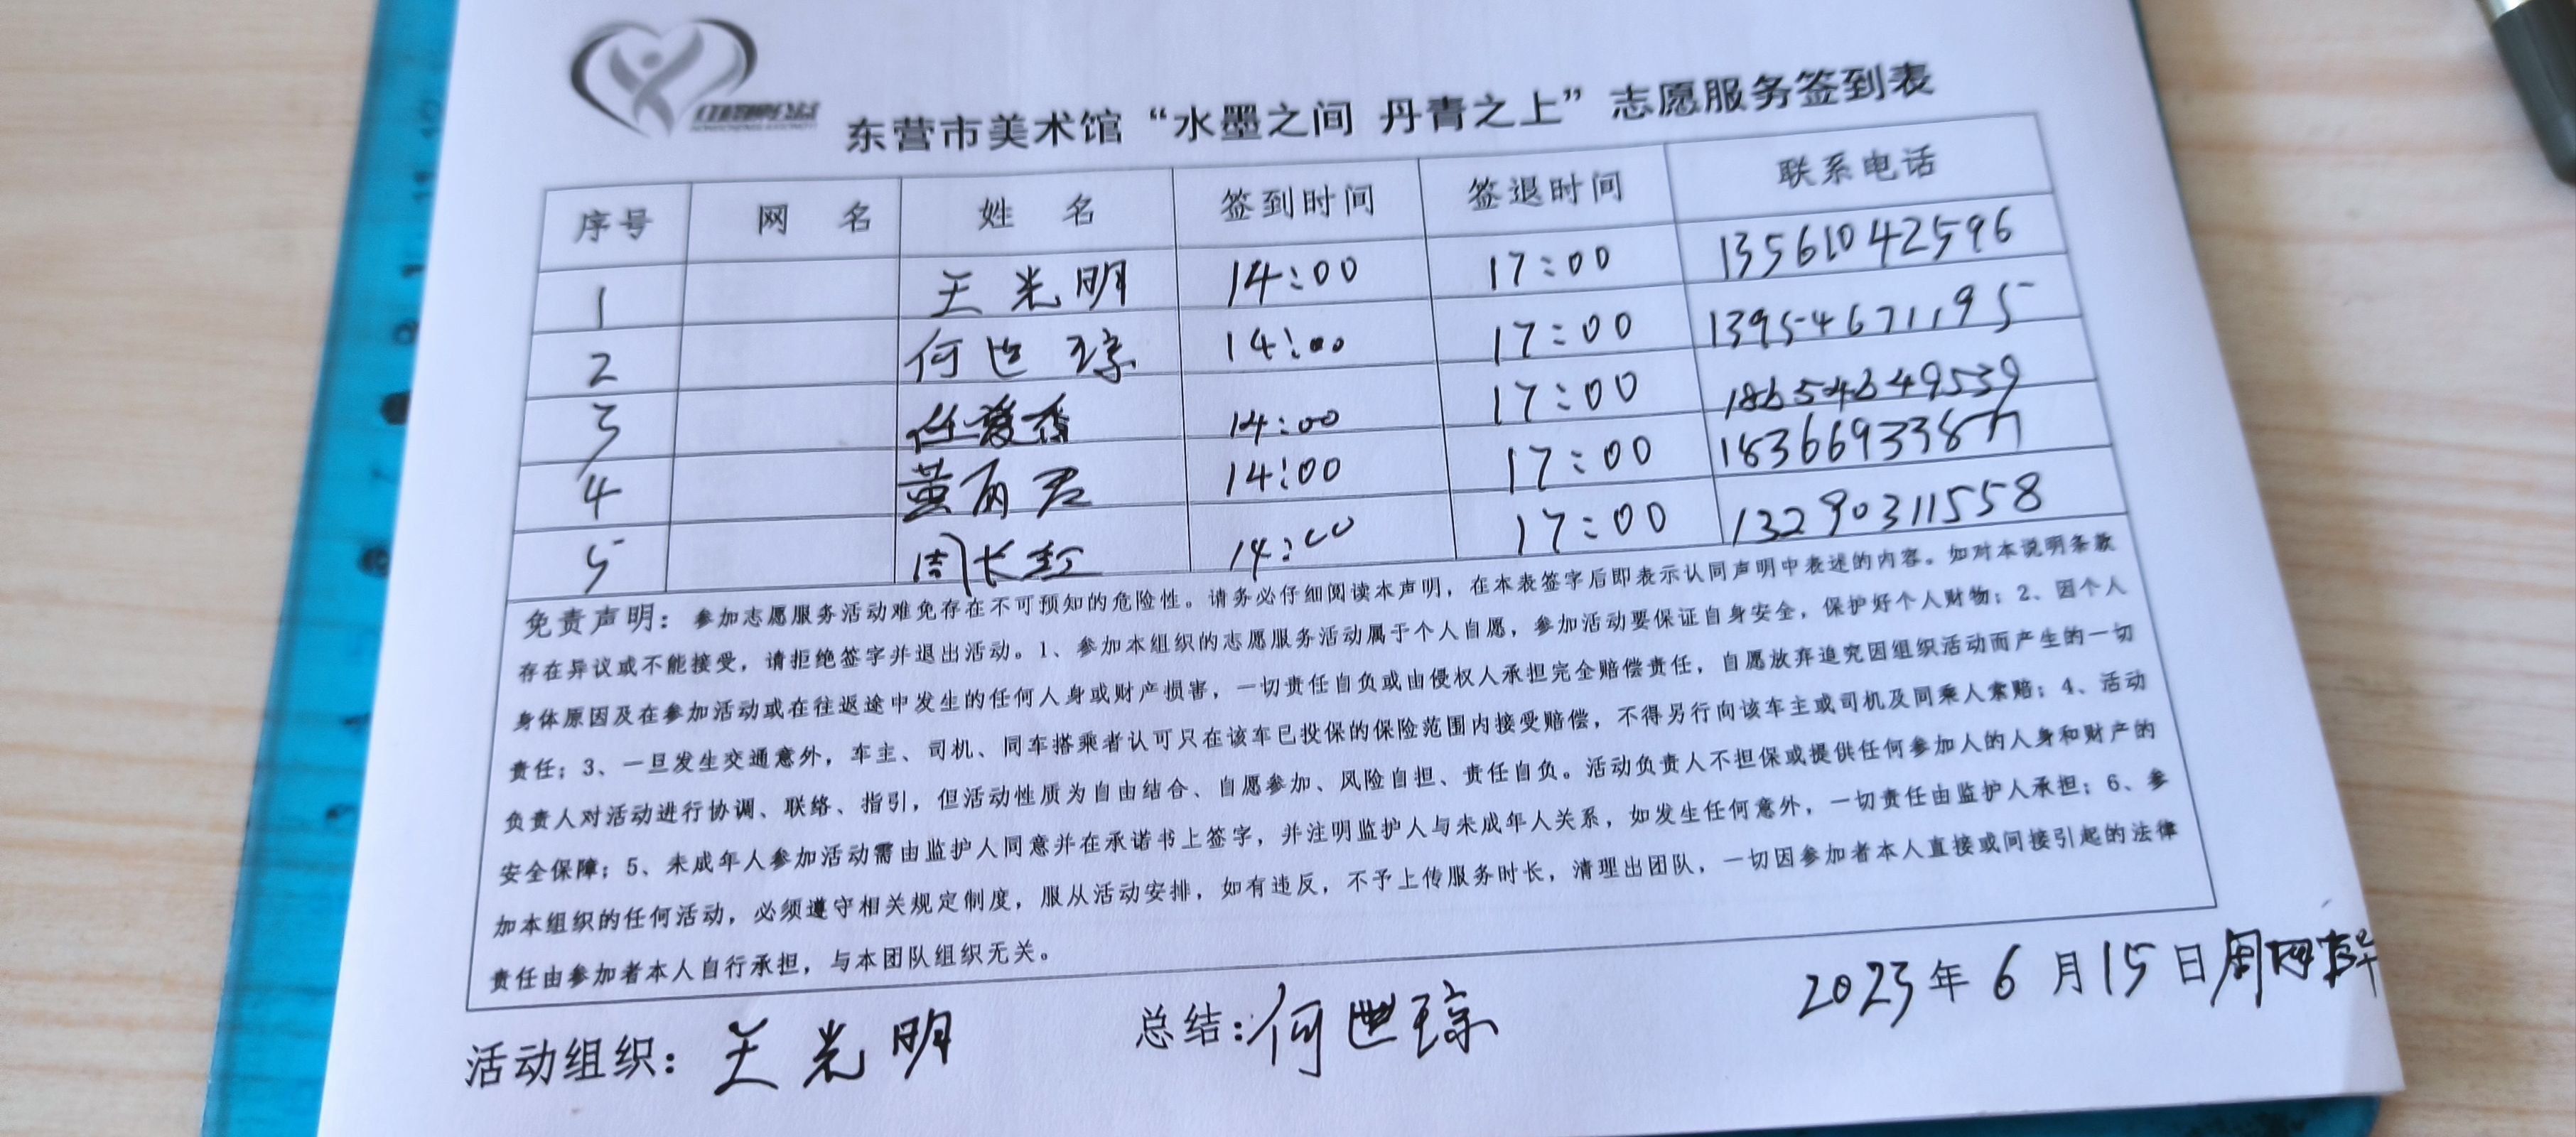 东营市美术馆“水墨之间 丹青之上”志愿服务签到表
序号 网 名 姓 名 签到时间 签退时间 联系电话
1 王光明 14:00 17:00 13561042596
2 何世琼 14:00 17:00 13954671195
3 任爱香 14:00 17:00 18654649539
4 黄丽君 14:00 17:00
5 周长红 14:00 17:00 13290311558
免责声明：参加志愿服务活动难免存在不可预知的危险性。请务必仔细阅读本声明，在本表签字后即表示认同声明中表述的内容。如对本说明条款
存在异议或不能接受，请拒绝签字并退出活动。1、参加本组织的志愿服务活动属于个人自愿，参加活动要保证自身安全，保护好个人财物；2、因个人
身体原因及在参加活动或在往返途中发生的任何人身或财产损害，一切责任自负或由侵权人承担完全赔偿责任，自愿放弃追究因组织活动而产生的一切
责任；3、一旦发生交通意外，车主、司机、同车搭乘者认可只在该车已投保的保险范围内接受赔偿，不得另行向该车主或司机及同乘人索赔；4、活动
负责人对活动进行协调、联络、指引，但活动性质为自由结合、自愿参加、风险自担、责任自负。活动负责人不担保或提供任何参加人的人身和财产的
安全保障；5、未成年人参加活动需由监护人同意并在承诺书上签字，并注明监护人与未成年人关系，如发生任何意外，一切责任由监护人承担；6、参
加本组织的任何活动，必须遵守相关规定制度，服从活动安排，如有违反，不予上传服务时长，清理出团队，一切因参加者本人直接或间接引起的法律
责任由参加者本人自行承担，与本团队组织无关。
活动组织：王光明 总结：何世琼 2023年6月15日